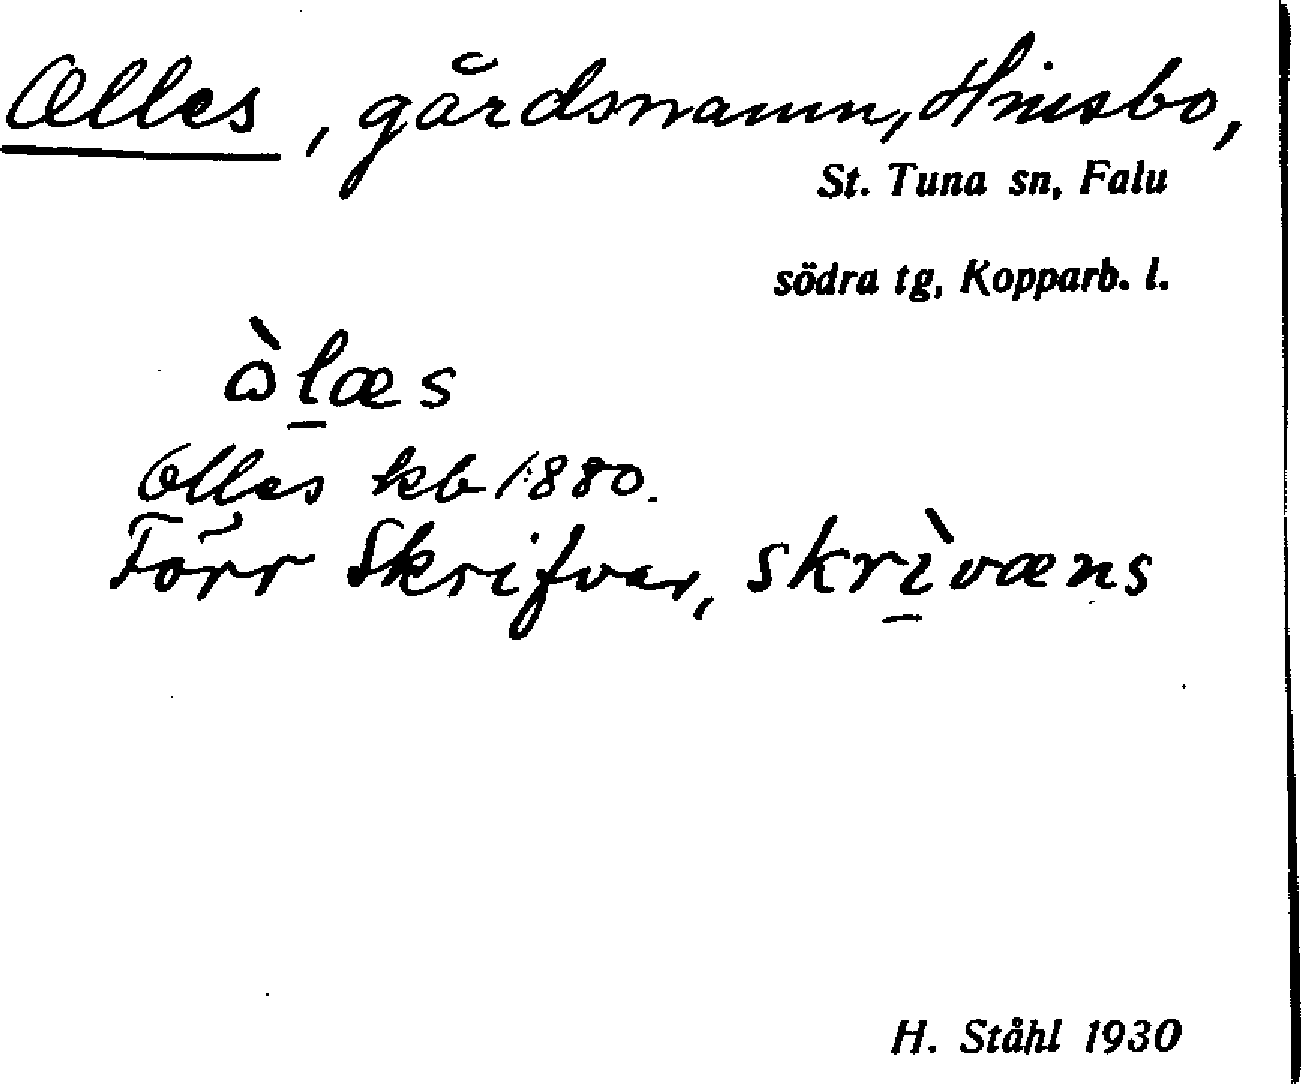 Olles, gårdsnamn, Hinsbo,
St. Tuna sn, Falu
södra tg, Kopparb. l.
ɷ̀l̲æs
Olles kb 1880.
Förr Skrifvar, skrì̲væns
H. Ståhl 1930